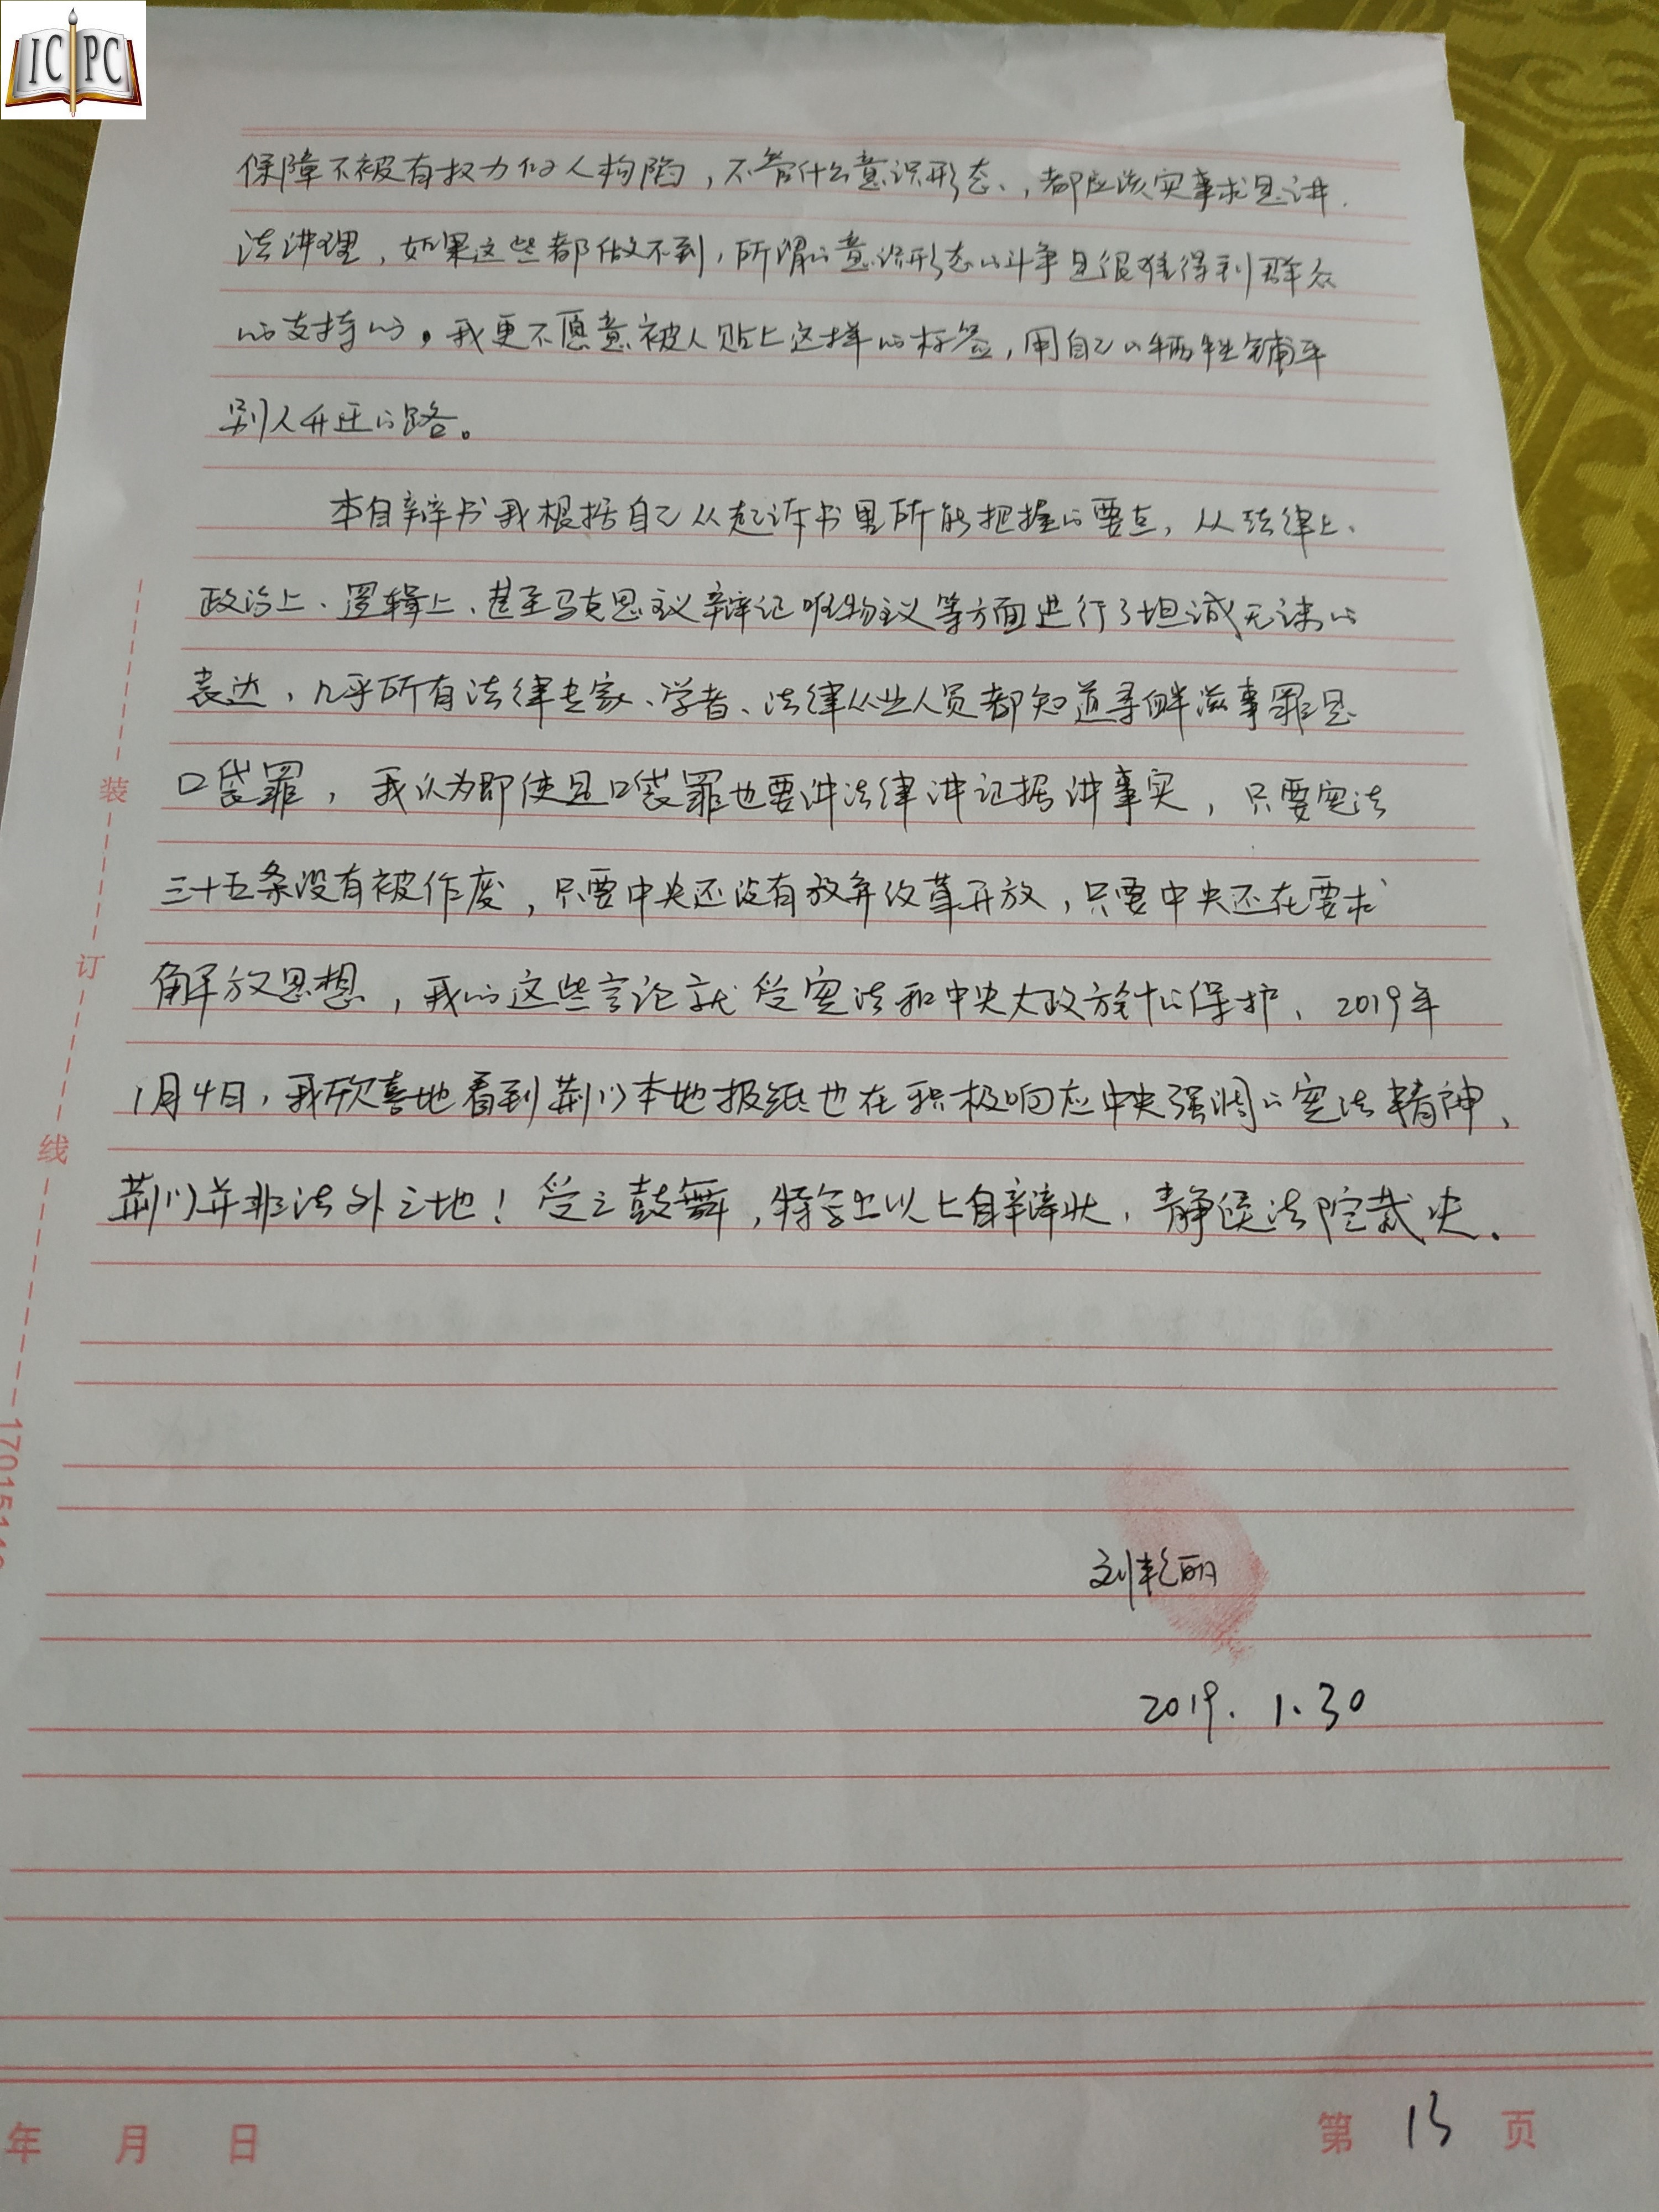 IC PC
保障不被有权力的人构陷，不管什么意识形态，都应该实事求是讲
法讲理，如果这些都做不到，所谓的意识形态的斗争是很难得到群众
的支持的。我更不愿意被人贴上这样的标签，用自己的牺牲铺平
别人升迁的路。
本自辩书我根据自己从起诉书里所能把握的要点，从法律上、
政治上、逻辑上、甚至马克思主义辩证唯物主义等方面进行了坦诚无讳的
表达，几乎所有法律专家、学者、法律从业人员都知道寻衅滋事罪是
口袋罪，我认为即使是口袋罪也要讲法律讲证据讲事实，只要宪法
三十五条没有被作废，只要中央还没有放弃改革开放，只要中央还在要求
解放思想，我的这些言论就受宪法和中央大政方针的保护、2019年
1月4日，我欣喜地看到荆门本地报纸也在积极响应中央强调的宪法精神，
荆门并非法外之地！受之鼓舞，特呈上以上自辩状，静候法院裁决。
刘艳丽
2019. 1.30
装
订
线
年 月 日
第 13 页